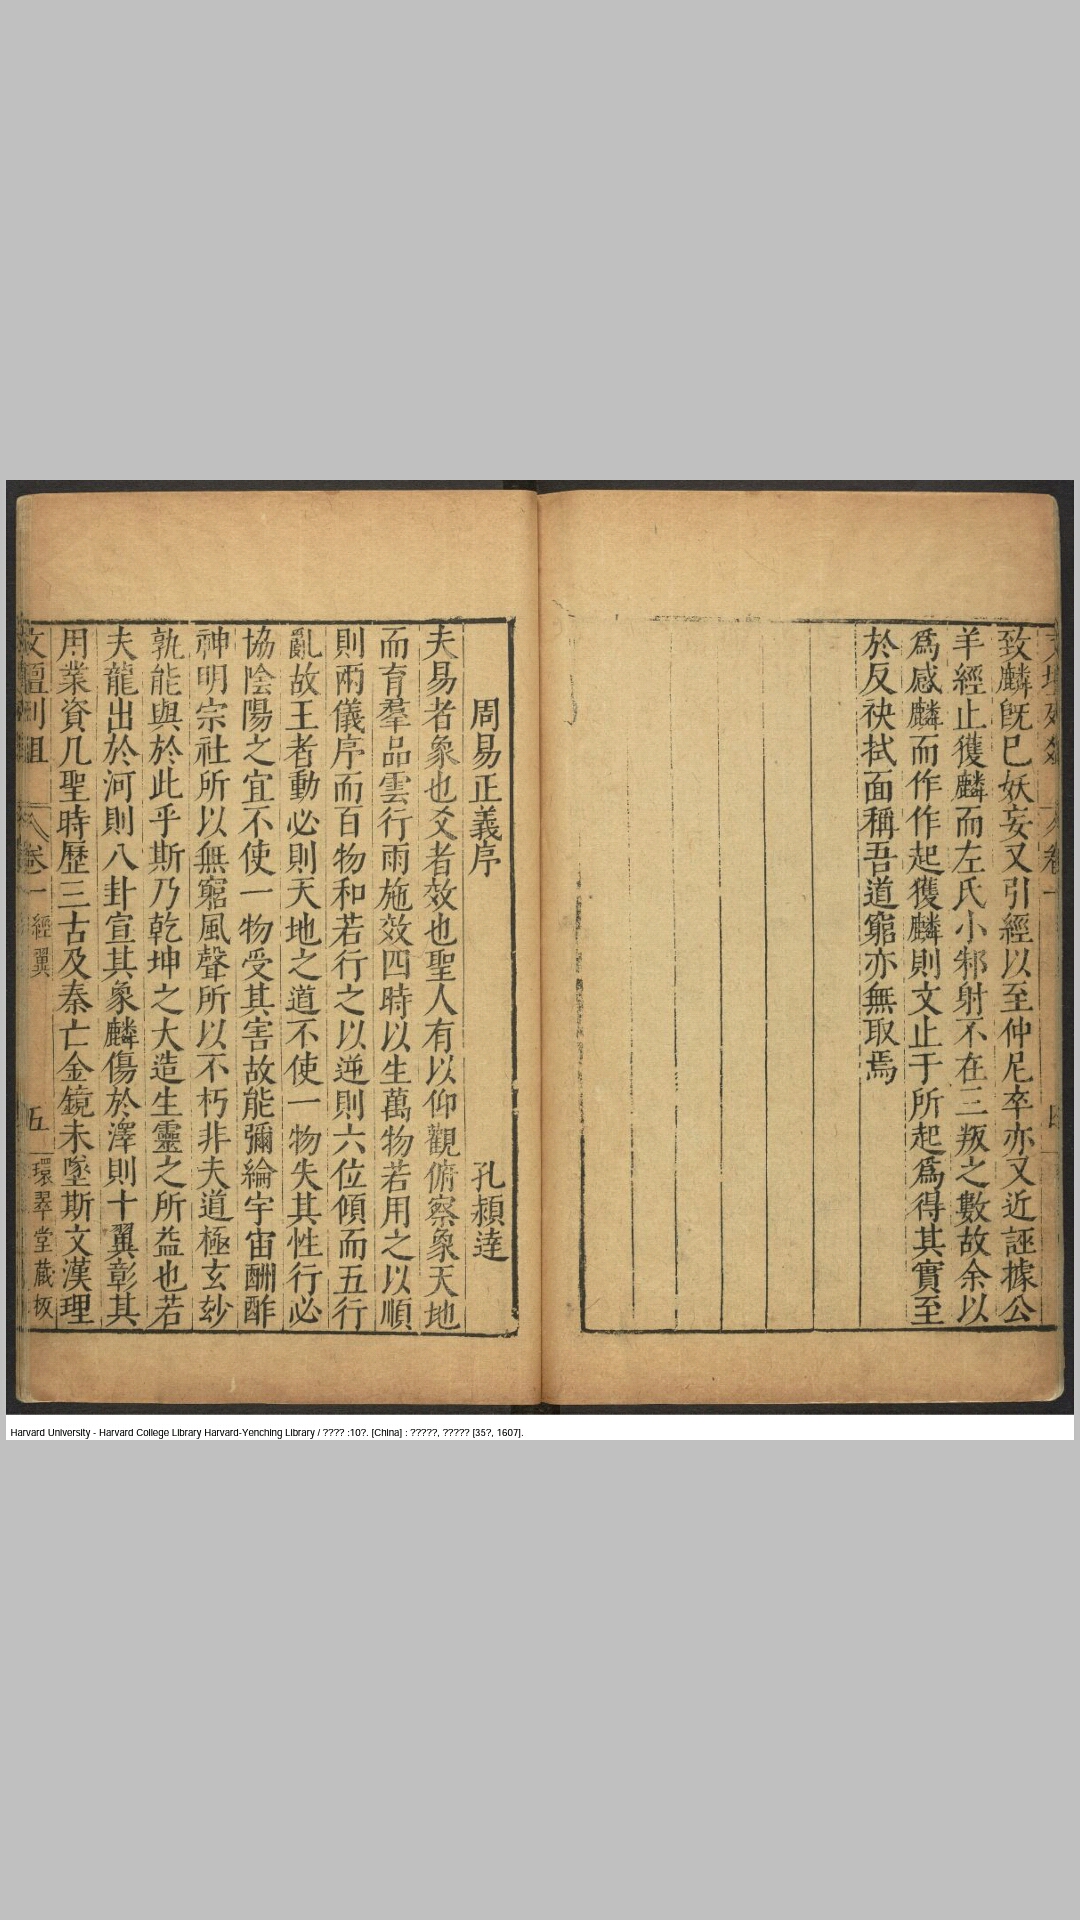 致麟旣已妖妄又引經以至仲尼卒亦又近誣據公
羊經止獲麟而左氏小邾射不在三叛之數故余以
爲感麟而作作起獲麟則文止于所起爲得其實至
於反袂拭面稱吾道窮亦無取焉
周易正義序
孔穎達
夫易者象也爻者效也聖人有以仰觀俯察象天地
而育羣品雲行雨施效四時以生萬物若用之以順
則兩儀序而百物和若行之以逆則六位傾而五行
亂故王者動必則天地之道不使一物失其性行必
協陰陽之宜不使一物受其害故能彌綸宇宙酬酢
神明宗社所以無窮風聲所以不朽非夫道極玄玅
孰能與於此乎斯乃乾坤之大造生靈之所益也若
夫龍出於河則八卦宣其象麟傷於澤則十翼彰其
用業資几聖時歷三古及秦亡金鏡未墜斯文漢理
卷一
經翼
五
環翠堂藏板
Harvard University - Harvard College Library Harvard-Yenching Library / ???? :10?. [China] : ?????, ????? [35?, 1607].